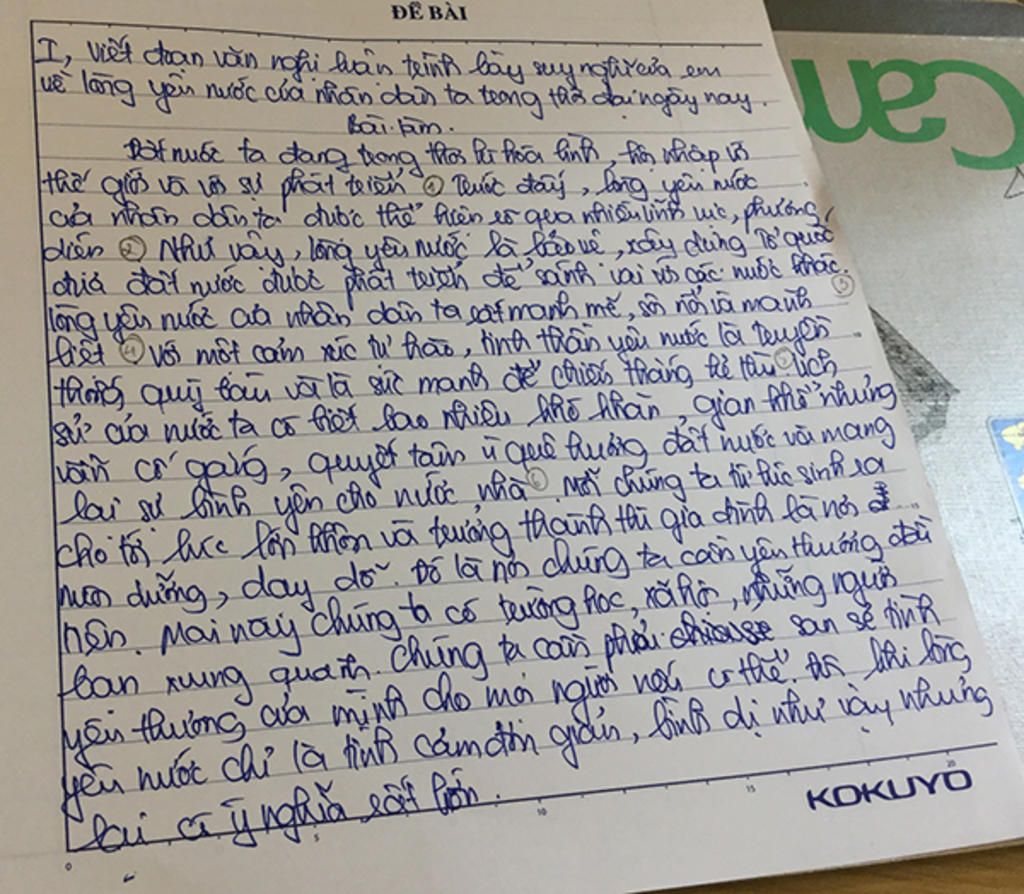 ĐỀ BÀI
I, viết đoạn văn nghị luận trình bày suy nghĩ của em
về lòng yêu nước của nhân dân ta trong thời đại ngày nay.
Bài làm.
Đất nước ta đang trong thời kì hòa bình, hội nhập với
thế giới và với sự phát triển ① Trước đây, lòng yêu nước
của nhân dân ta được thể hiện rõ qua nhiều lĩnh vực, phương
diện ② Như vậy, lòng yêu nước là bảo vệ, xây dựng Tổ quốc
đưa đất nước được phát triển để sánh vai với các nước khác. ③
lòng yêu nước của nhân dân ta rất mạnh mẽ, sôi nổi và mãnh
liệt ④ với một cảm xúc tự hào, tinh thần yêu nước là truyền
thống quý báu và là sức mạnh để chiến thắng kẻ thù ⑤ lịch
sử của nước ta có biết bao nhiêu khó khăn, gian khổ nhưng
vẫn cố gắng, quyết tâm vì quê hương đất nước và mang
lại sự bình yên cho nước nhà ⑥ Mỗi chúng ta từ lúc sinh ra
cho tới lúc lớn khôn và trưởng thành thì gia đình là nơi
nuôi dưỡng, dạy dỗ. Đó là nơi chúng ta cần yêu thương đầu
tiên. Mai này chúng ta có trường học, xã hội, những người
bạn xung quanh. Chúng ta cần phải san sẻ tình
yêu thương của mình cho mọi người nếu có thể. Đôi khi lòng
yêu nước chỉ là tình cảm đơn giản, bình dị như vậy nhưng
lại có ý nghĩa rất lớn.
KOKUYO
0 5 10 15 20
Can